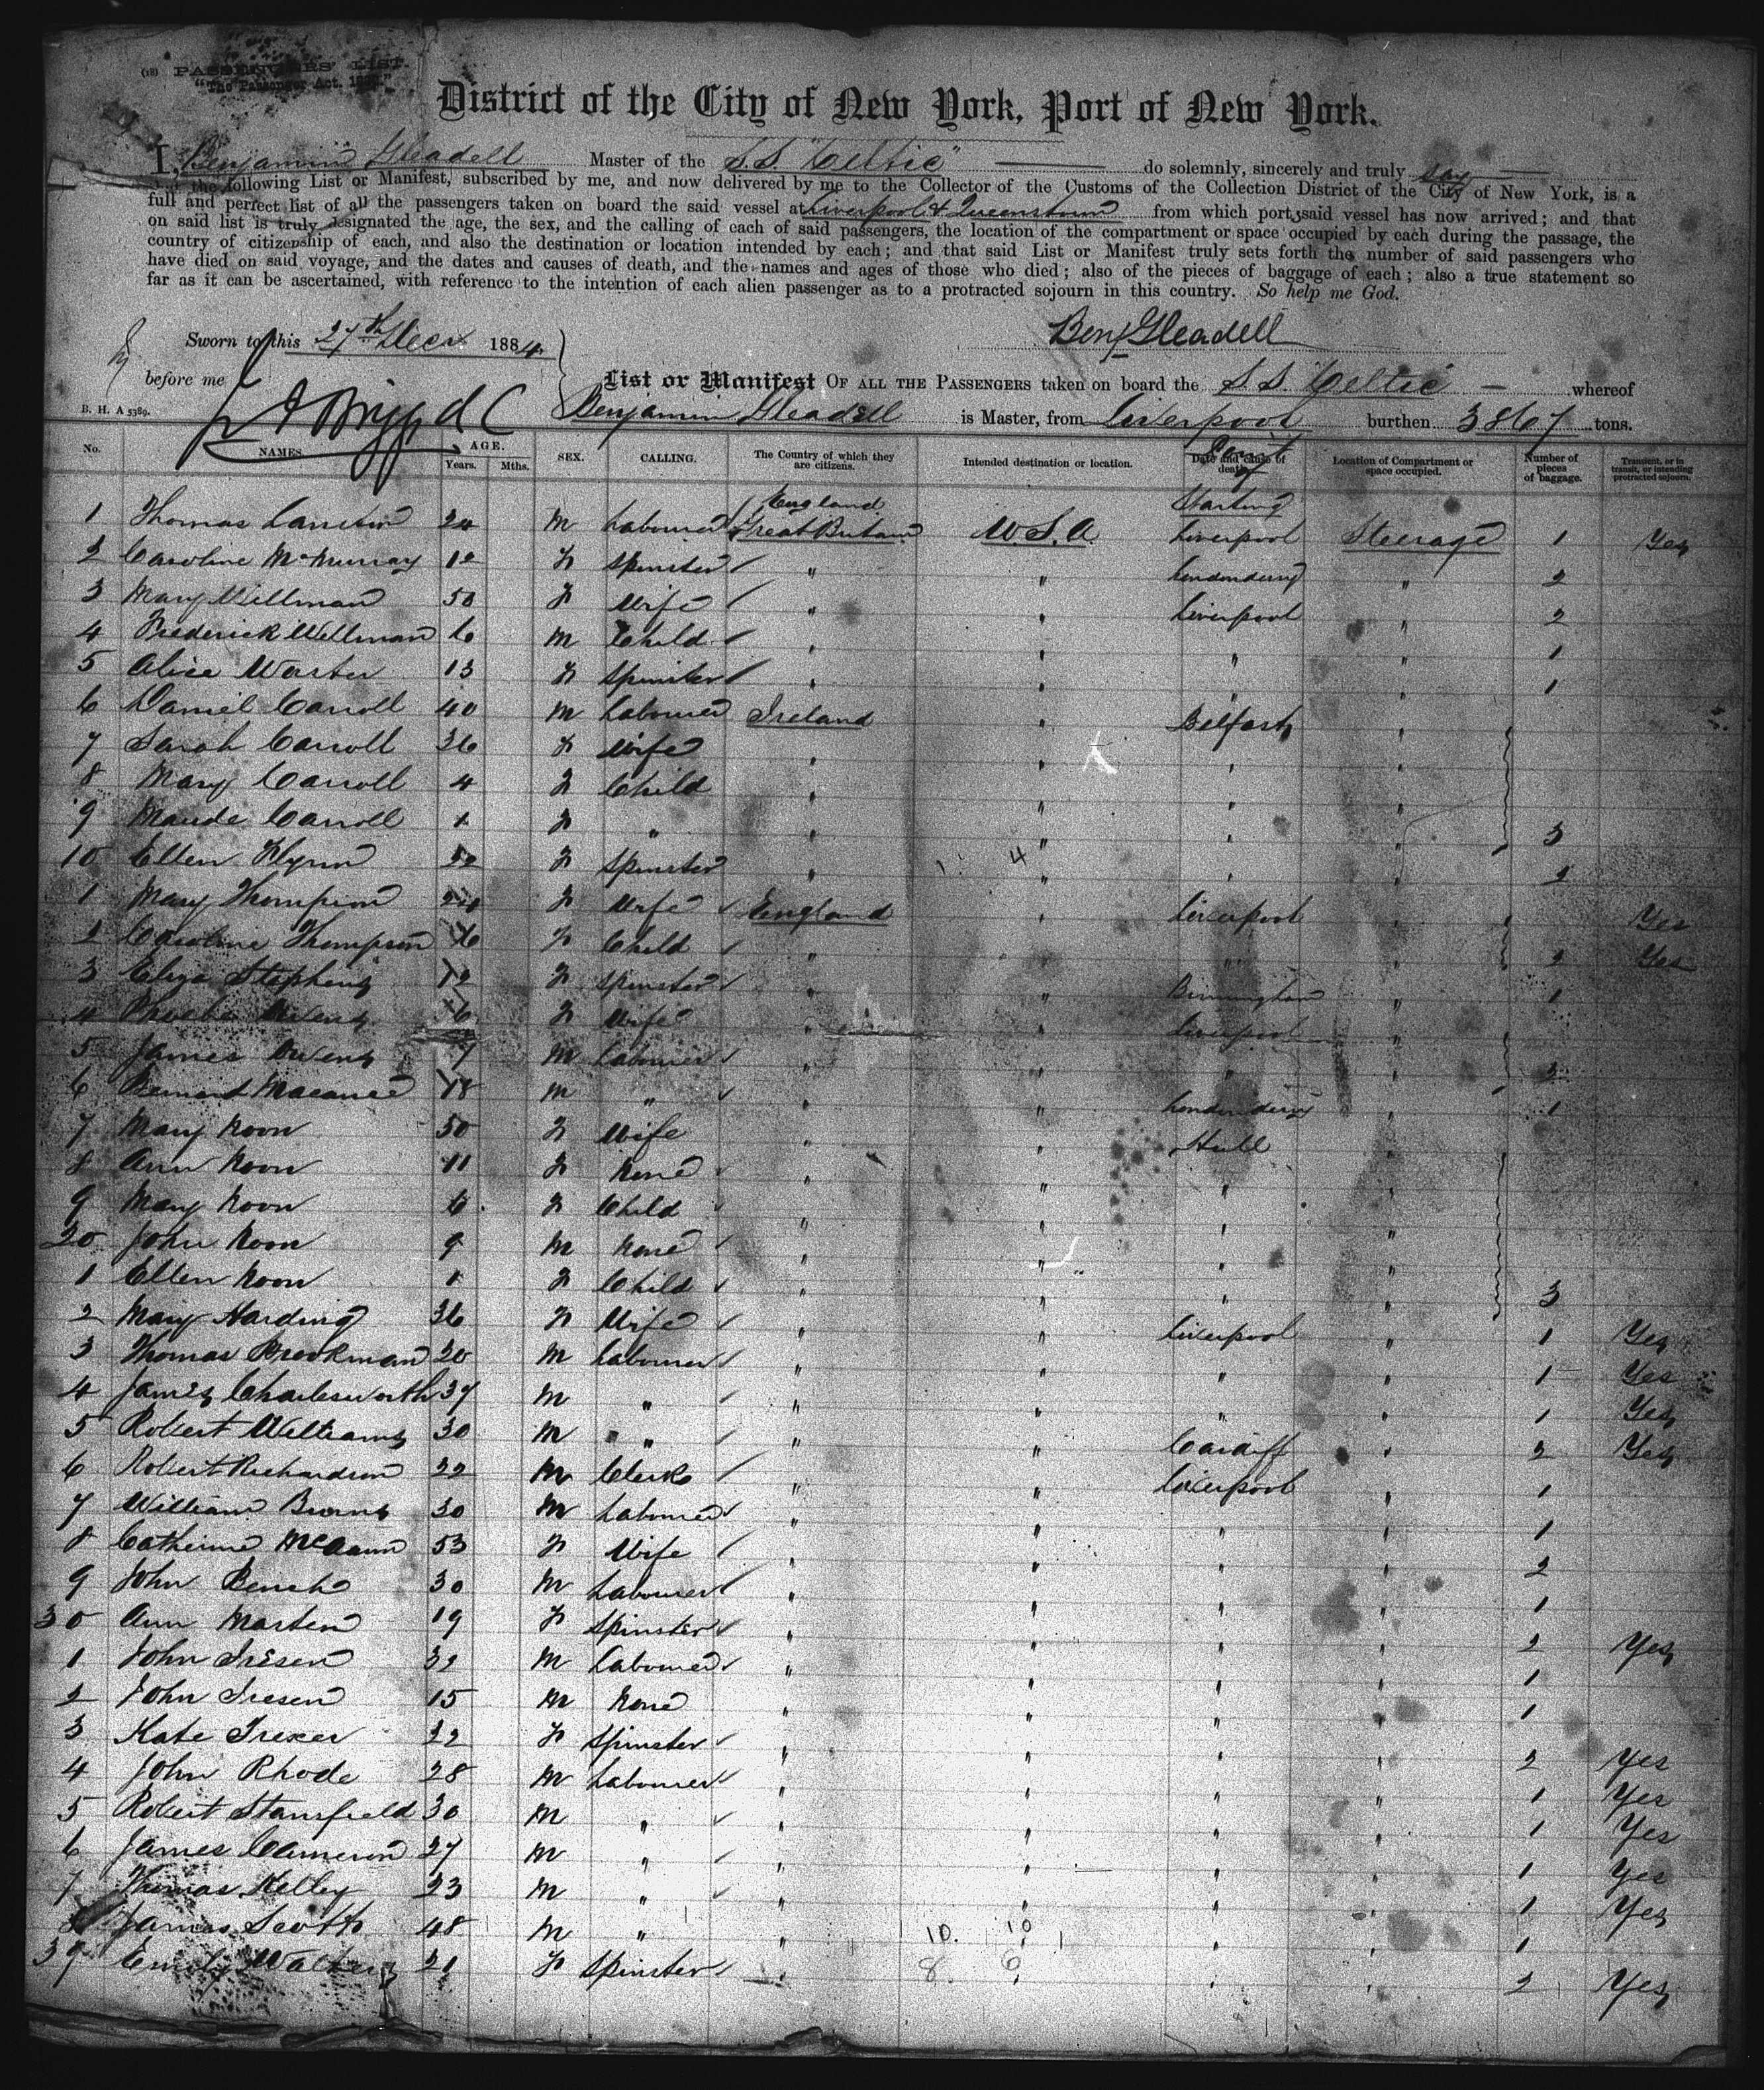 (18) PASSENGERS' LIST.
"The Passenger Act. 1882."
District of the City of New York, Port of New York.
I, Benjamin Gleadell Master of the S.S. "Celtic" do solemnly, sincerely and truly say
that the following List or Manifest, subscribed by me, and now delivered by me to the Collector of the Customs of the Collection District of the City of New York, is a
full and perfect list of all the passengers taken on board the said vessel at Liverpool & Queenstown from which port, said vessel has now arrived; and that
on said list is truly designated the age, the sex, and the calling of each of said passengers, the location of the compartment or space occupied by each during the passage, the
country of citizenship of each, and also the destination or location intended by each; and that said List or Manifest truly sets forth the number of said passengers who
have died on said voyage, and the dates and causes of death, and the names and ages of those who died; also of the pieces of baggage of each; also a true statement so
far as it can be ascertained, with reference to the intention of each alien passenger as to a protracted sojourn in this country. So help me God.
Sworn to this 27th Decr 1884 Benj Gleadell
before me
List or Manifest OF ALL THE PASSENGERS taken on board the S.S. Celtic whereof
B. H. A 5389. Benjamin Gleadell is Master, from Liverpool burthen 3867 tons.
No. NAMES. AGE. Years. Mths. SEX. CALLING. The Country of which they are citizens. Intended destination or location. Date and cause of death. Location of Compartment or space occupied. Number of pieces of baggage. Transient, or in transit, or intending protracted sojourn.
England Starting
1 24 M Labourer Great Britain U.S.A. Liverpool Steerage 1 Yes
2 Caroline McMurray 12 F Spinster " " Londonderry " 2
3 Mary Millman 50 F Wife " " Liverpool " 2
4 Frederick 6 M Child " " " " 1
5 Alice 13 F Spinster " " " " 1
6 Daniel Carroll 40 M Labourer Ireland " Belfast "
7 Sarah Carroll 36 F Wife " " " "
8 Mary Carroll 4 F Child " " " "
9 Maude Carroll 1 F " " " " " 3
10 Ellen Flynn 22 F Spinster " " " " 2
1 Mary Thompson 24 F Wife England " Liverpool " Yes
2 Caroline Thompson F Child " " " " 2 Yes
3 Eliza Stephens 12 F Spinster " " Birmingham " 1
4 Phoebe Owens F Wife " " Liverpool "
5 James Owens 7 M Labourer " " " " 2
6 Bernard 18 M " " " Londonderry " 1
7 Mary Noon 50 F Wife " " Hull "
8 Ann Noon 11 F None " " " "
9 Mary Noon 6 F Child " " " "
20 John Noon 9 M None " " " "
1 Ellen Noon 1 F Child " " " " 3
2 Mary Harding 36 F Wife " " Liverpool " 1 Yes
3 Thomas Brookman 20 M Labourer " " " " 1 Yes
4 James Charlesworth 37 M " " " " " 1 Yes
5 Robert Williams 30 M " " " Cardiff " 2 Yes
6 Robert Richardson 22 M Clerk " " Liverpool " 1
7 William Burns 30 M Labourer " " " " 1
8 Catherine McCann 53 F Wife " " " " 2
9 John Bench 30 M Labourer " " " " 1
30 Ann Marten 19 F Spinster " " " " 2 Yes
1 John 32 M Labourer " " " " 1
2 John 15 M None " " " " 1
3 Kate 22 F Spinster " " " " 2 Yes
4 John Rhode 28 M Labourer " " " " 1 Yes
5 Robert Stansfield 30 M " " " " " 1 Yes
6 James Cameron 27 M " " " " " 1 Yes
7 Thomas Kelley 23 M " " " " " 1 Yes
8 James Scott 48 M " " 10. 10 " " 1
39 Emily Walters 21 F Spinster " 8. 6 " " 2 Yes